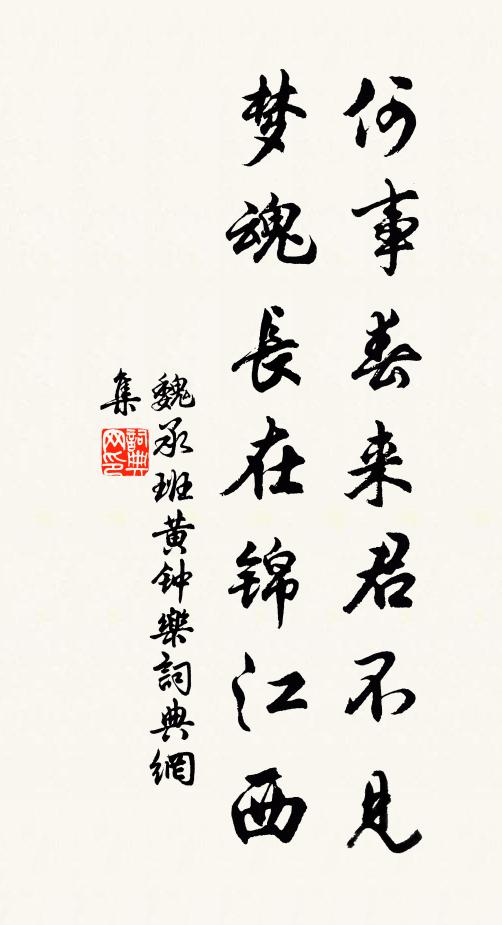 何事春来君不见
梦魂長在锦江西
魏承班黄钟樂詞典網
集
詞典网印